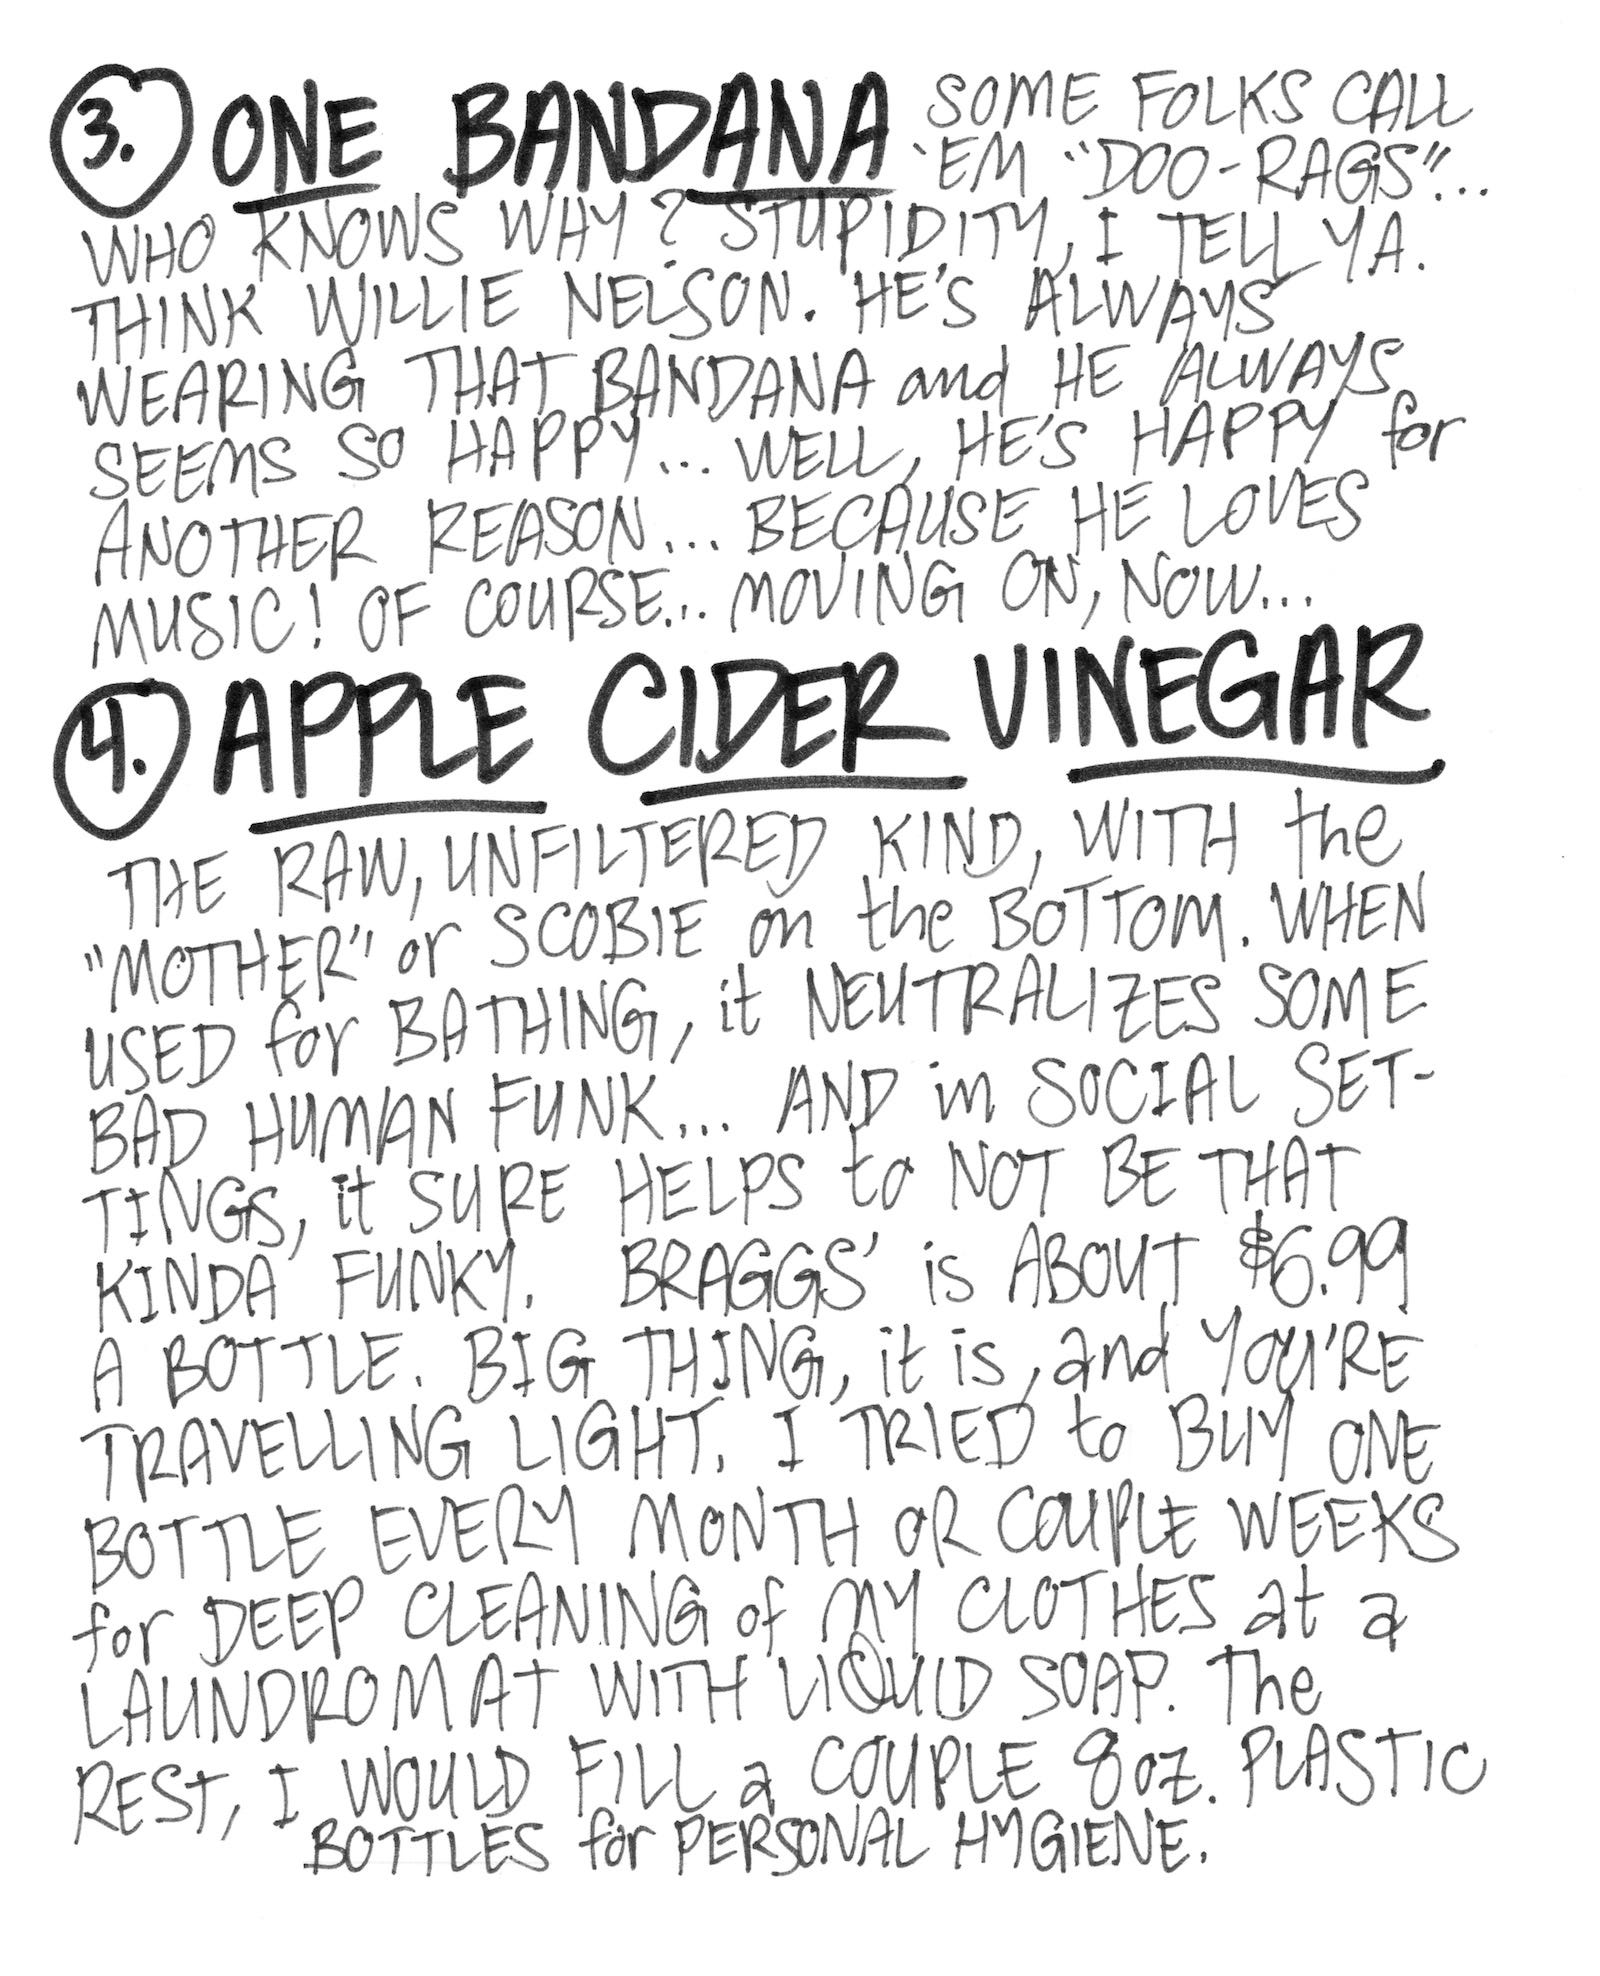 3. ONE BANDANA SOME FOLKS CALL
'EM "DOO-RAGS"...
WHO KNOWS WHY? STUPIDITY, I TELL YA.
THINK WILLIE NELSON. HE'S ALWAYS
WEARING THAT BANDANA and HE ALWAYS
SEEMS SO HAPPY... WELL, HE'S HAPPY for
ANOTHER REASON... BECAUSE HE LOVES
MUSIC! OF COURSE... MOVING ON, NOW...
4. APPLE CIDER VINEGAR
THE RAW, UNFILTERED KIND, WITH the
"MOTHER" or SCOBIE on the BOTTOM. WHEN
USED for BATHING, it NEUTRALIZES SOME
BAD HUMAN FUNK... AND in SOCIAL SET-
TINGS, it SURE HELPS to NOT BE THAT
KINDA FUNKY. BRAGGS' is ABOUT $6.99
A BOTTLE. BIG THING, it is, and YOU'RE
TRAVELLING LIGHT. I TRIED to BUY ONE
BOTTLE EVERY MONTH OR COUPLE WEEKS
for DEEP CLEANING of MY CLOTHES at a
LAUNDROMAT WITH LIQUID SOAP. The
REST, I WOULD FILL a COUPLE 8oz. PLASTIC
BOTTLES for PERSONAL HYGIENE.